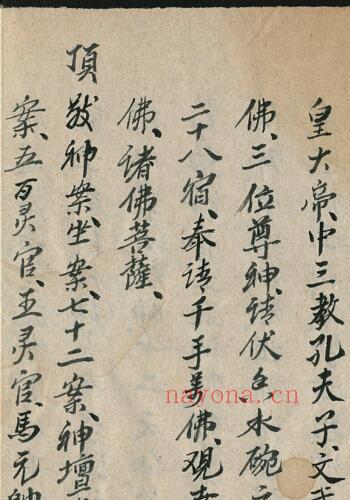 皇大帝、中三教孔夫子、文
佛、三位尊神、請伏水碗
二十八宿、奉请千手萬佛、观
佛、诸佛菩薩、
頂敬神案、坐案、七十二案、神壇
案、五百灵官、王灵官、馬元帅
nayona.cn